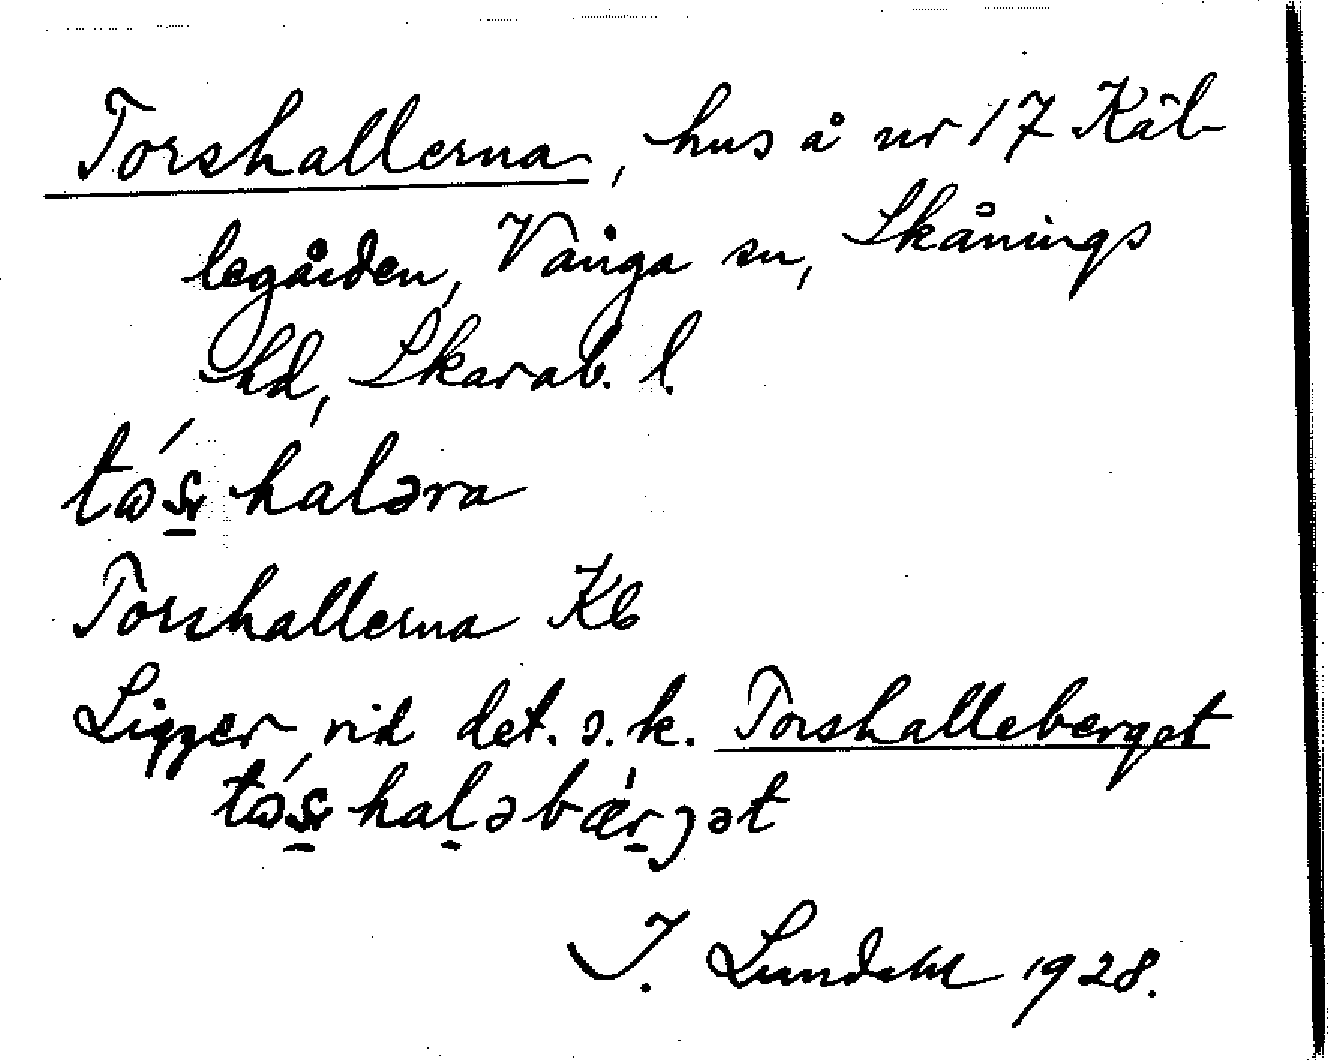 Torshallerna, hus å nr 17 Käb-
legården, Vånga sn, Skånings
hd, Skarab. l.
tɷ́s̠ haləra
Torshallerna Kb
Ligger vid det. s. k. Torshalleberget
tɷ́s̠ hal̠əbær̠jət
I. Lundahl 1928.